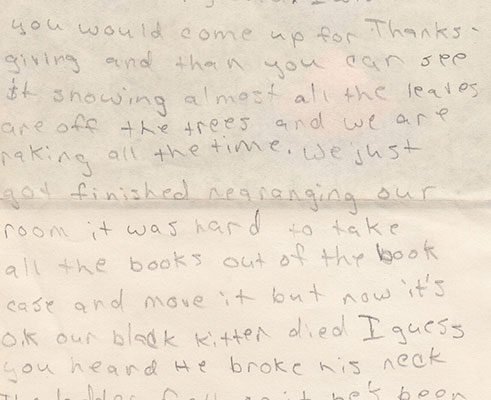 you would come up for Thanks-
giving and than you can see
it snowing almost all the leaves
are off the trees and we are
raking all the time. We just
got finished regranging our
room it was hard to take
all the books out of the book
case and move it but now it's
ok our black kitten died I guess
you heard He broke his neck
The ladder fell on it he's been